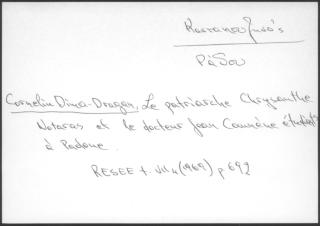 Ρόδου
Cornelia Dima-Dragan, Le patriarche Chrysanthe
Notaras et le docteur Jean Comnène étudiants
à Padoue.
RESEE t. VII 4 (1969) p 692